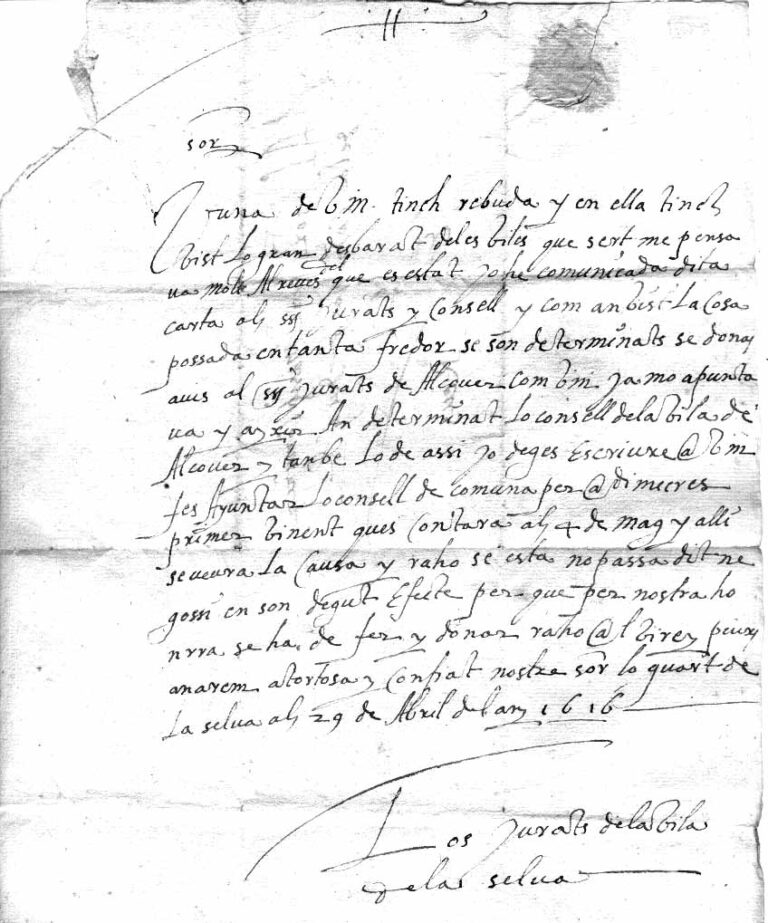 sor
una de bm. tinch rebuda y en ella tinch
bist lo gran desbarat deles biles que sert me pensa
va molt Al reves del que es estat jo he comunicada dita
carta als ssrs jurats y Consell y com an bist La Cosa
possada en tanta fredor se son determinats se donas
avis al ssrs jurats de Alcover com bm ja mo apunta
va y axis An determinat Lo consell dela bila de
Alcover y tanbe Lo de assi jo deges Escriure @ bm
fes Ajuntar Lo consell de comuna per @ dimecres
primer binent ques contara als 4 de mag y alli
se veura La Causa y raho se esta no passa dit ne
gossi en son degut Efecte per que per nostra ho
nrra se ha de fer y donar raho @l birey
anarem a tortosa y Confiat nostre sor lo quart de
La selva als 29 de Abril del any 1616
Los jurats dela bila
dela selva